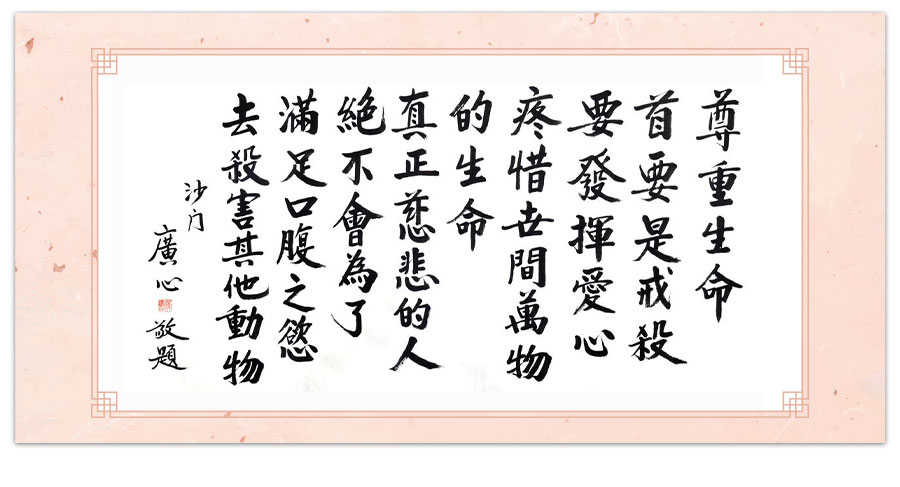 尊重生命
首要是戒殺
要發揮愛心
疼惜世間萬物
的生命
真正慈悲的人
絕不會為了
滿足口腹之慾
去殺害其他動物
沙門
廣心 敬題